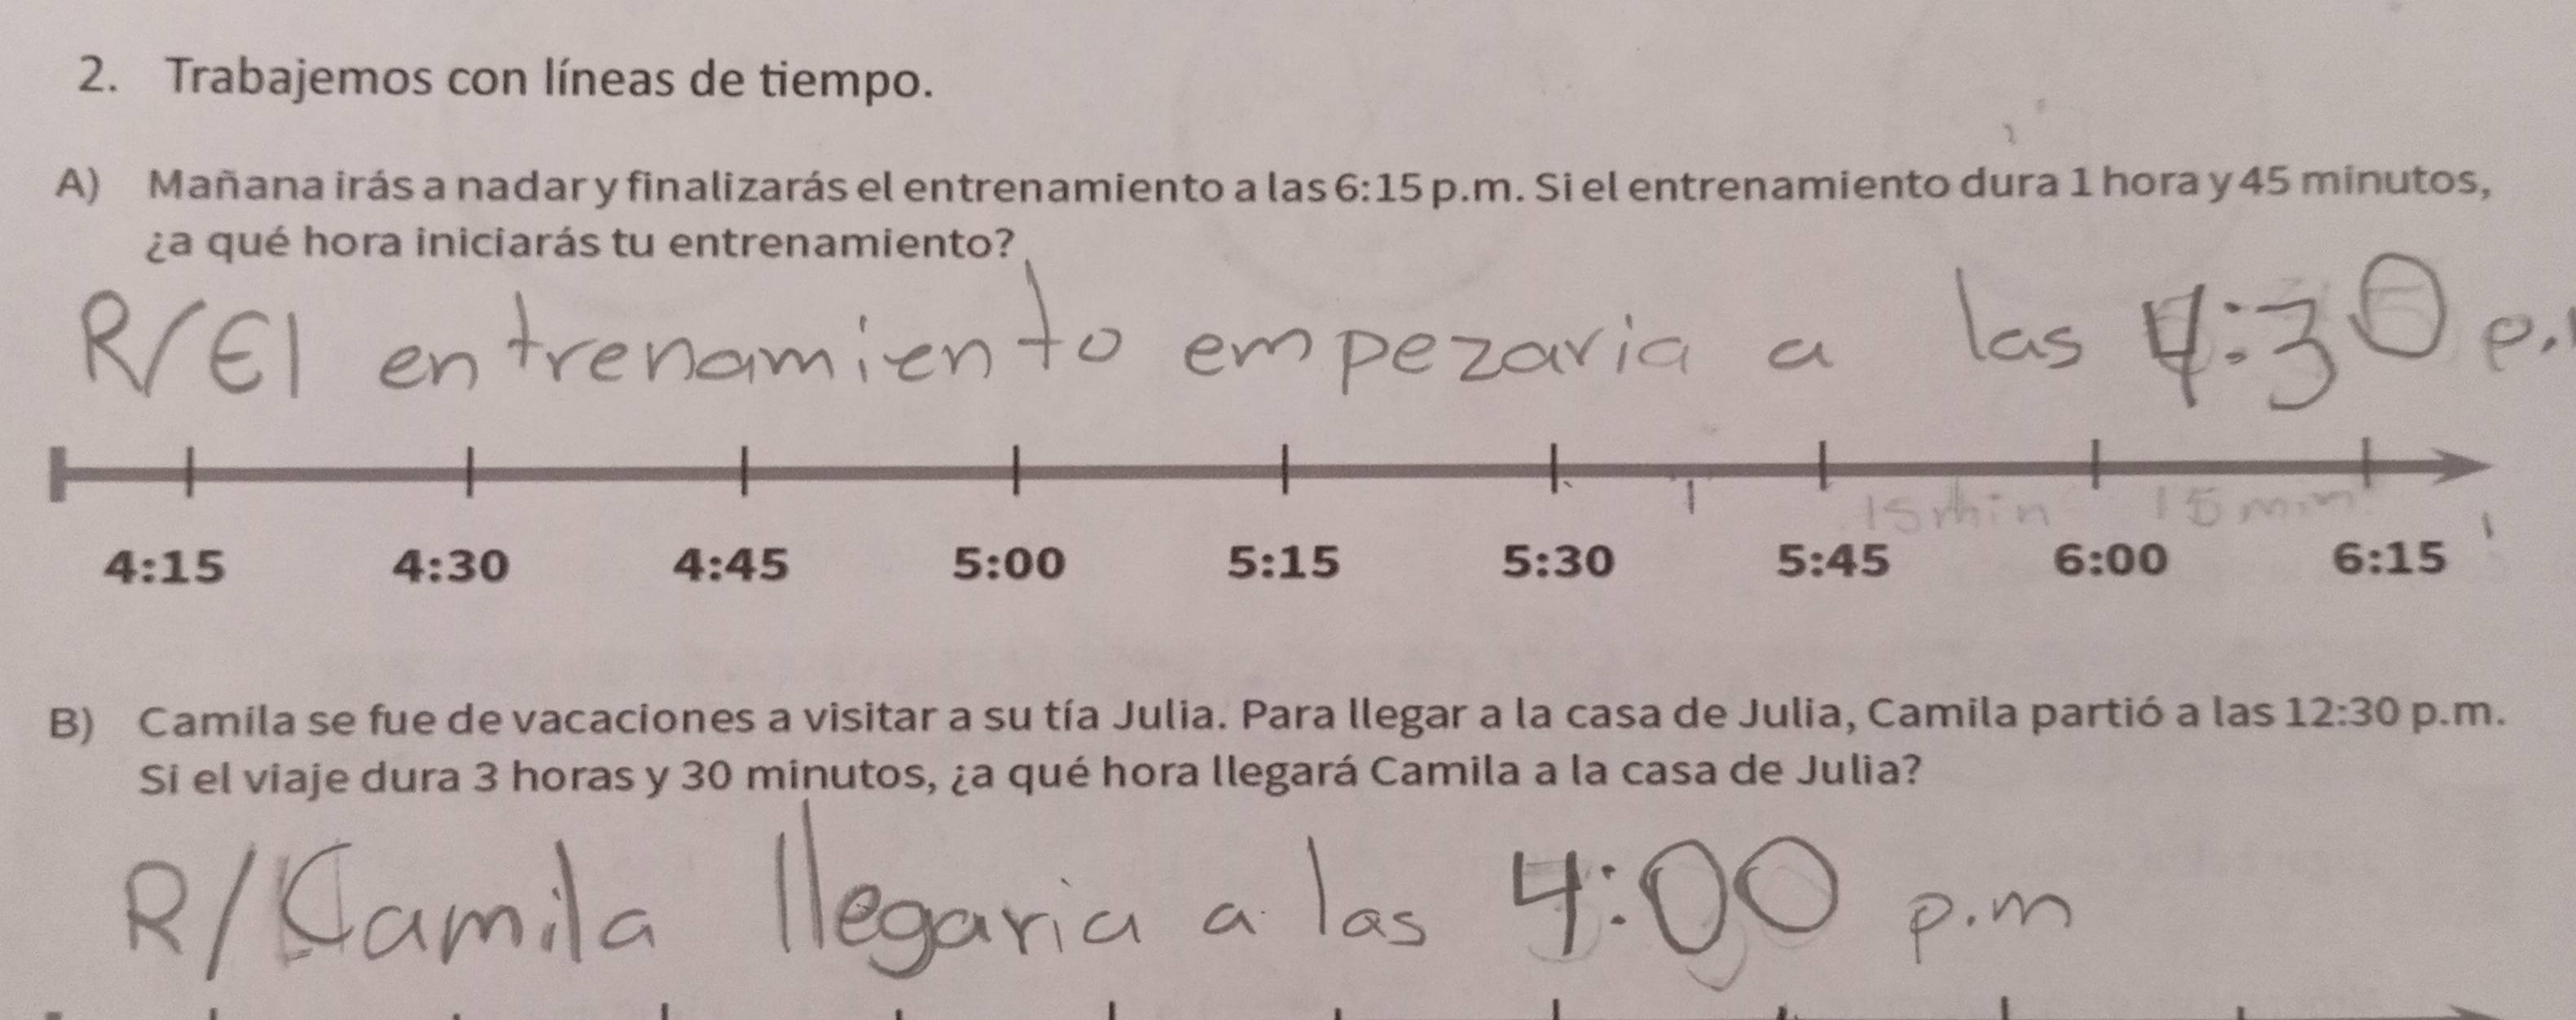 2. Trabajemos con líneas de tiempo.
A) Mañana irás a nadar y finalizarás el entrenamiento a las 6:15 p.m. Si el entrenamiento dura 1 hora y 45 minutos,
¿a qué hora iniciarás tu entrenamiento?
R/El entrenamiento empezaria a las 4:30 p.
15 min 15 min
4:15 4:30 4:45 5:00 5:15 5:30 5:45 6:00 6:15
B) Camila se fue de vacaciones a visitar a su tía Julia. Para llegar a la casa de Julia, Camila partió a las 12:30 p.m.
Si el viaje dura 3 horas y 30 minutos, ¿a qué hora llegará Camila a la casa de Julia?
R/Camila llegaria a las 4:00 p.m